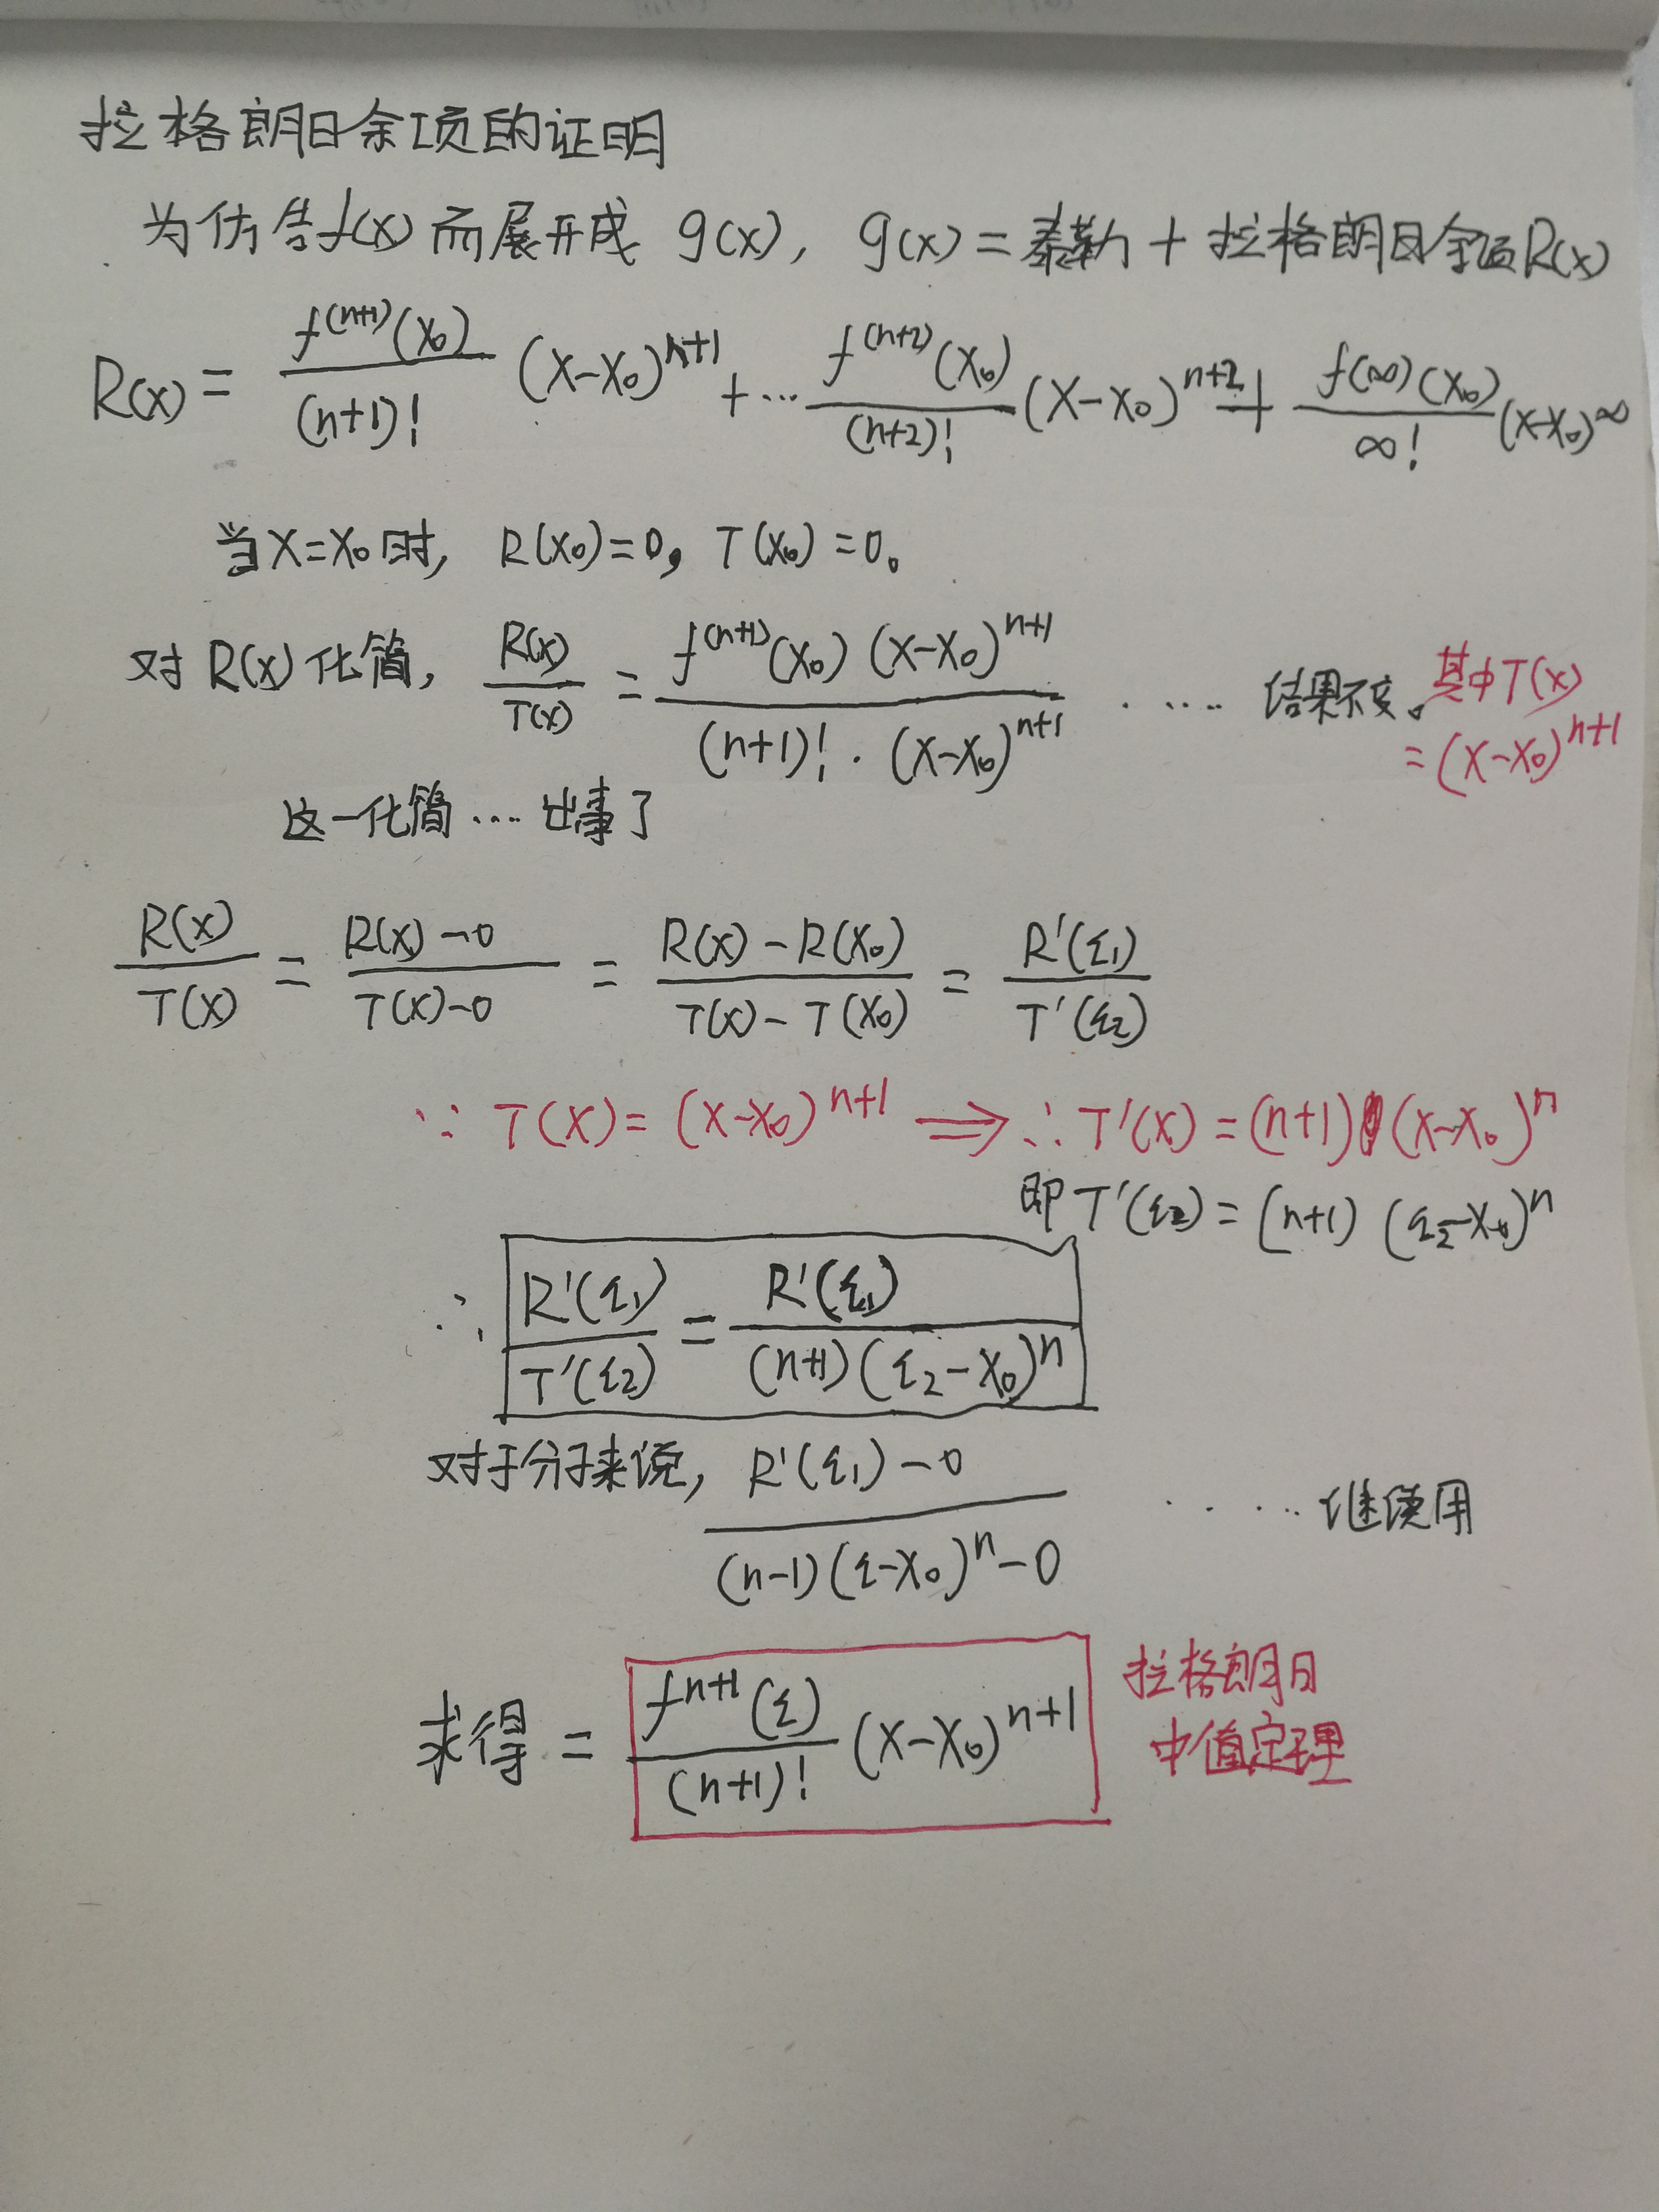 拉格朗日余项的证明
为仿告f(x)而展开成 g(x), g(x)=泰勒+拉格朗日余项R(x)
R(x)= f^(n+1)(x₀)/(n+1)! (x-x₀)^n+1 +… f^(n+2)(x₀)/(n+2)! (x-x₀)^n+2 + f(∞)(x₀)/∞! (x-x₀)^∞
当x=x₀时, R(x₀)=0, T(x₀)=0。
对R(x)化简, R(x)/T(x) = f^(n+1)(x₀)(x-x₀)^n+1 / (n+1)!·(x-x₀)^n+1 ····· 结果不变。其中T(x)
=(x-x₀)^n+1
这一化简…. 出事了
R(x)/T(x) = R(x)-0 / T(x)-0 = R(x)-R(x₀) / T(x)-T(x₀) = R'(ξ₁)/T'(ξ₂)
∵ T(x)=(x-x₀)^n+1 ⟹ ∴T'(x)=(n+1)(x-x₀)^n
即T'(ξ₂)=(n+1)(ξ₂-x₀)^n
∴ R'(ξ₁)/T'(ξ₂) = R'(ξ₁) / (n+1)(ξ₂-x₀)^n
对于分子来说, R'(ξ₁)-0 / (n-1)(ξ-x₀)^n-0 ····· 继续用
求得 = f^n+1(ξ)/(n+1)! (x-x₀)^n+1
拉格朗日
中值定理